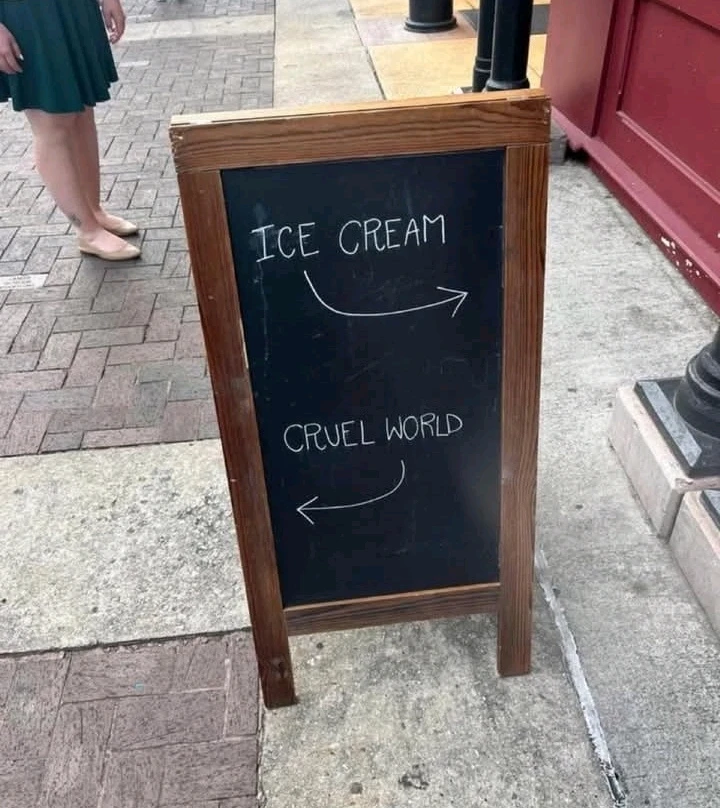 ICE CREAM
CRUEL WORLD